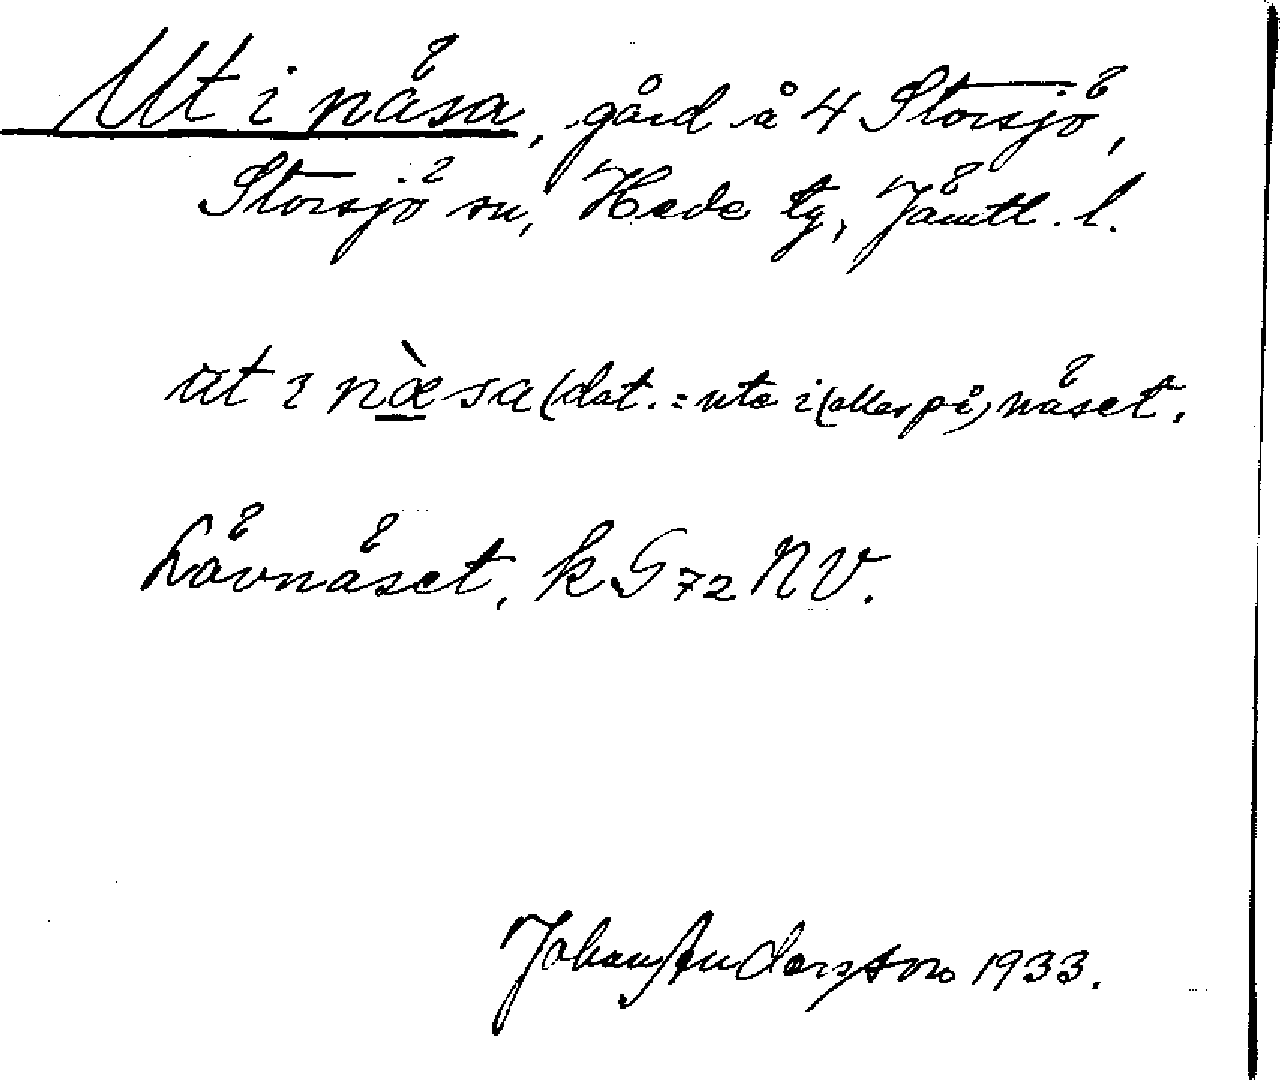 Ut i näsa, gård å 4 Storsjö,
Storsjö sn, Hede tg, Jämtl. l.
ut i næ̀sa (dat. = ute i (eller på) näset.
Lövnäset, k G 72 NV.
Johan Andersson 1933.